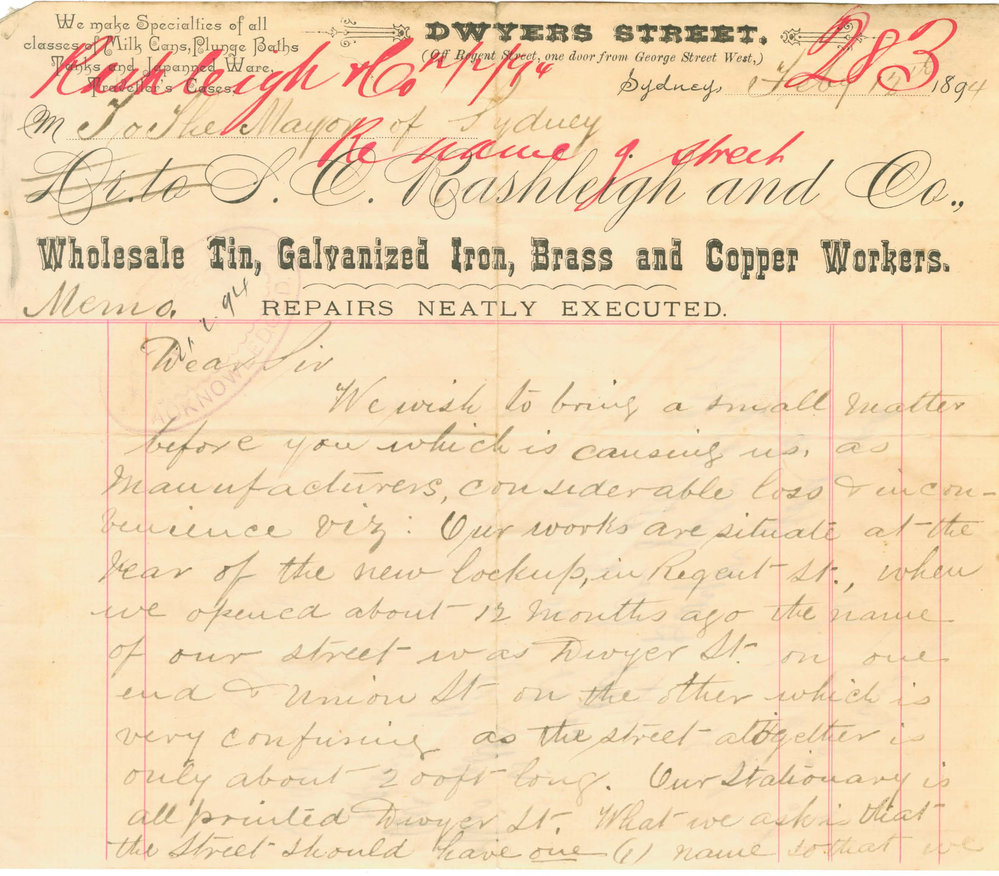 We make Specialties of all
classes of Milk Cans, Plunge Baths
Tanks and Japanned Ware,
Traveller's Cases.
DWYERS STREET.
(Off Regent Street, one door from George Street West,)
283
Rashleigh & Co
Sydney, Feby 1894
M To The Mayor of Sydney
Re name of street
Dr. to S. C. Rashleigh and Co.,
Wholesale Tin, Galvanized Iron, Brass and Copper Workers.
Memo. REPAIRS NEATLY EXECUTED.
21.2.94
ACKNOWLEDGED
Dear Sir
We wish to bring a small matter
before you which is causing us, as
Manufacturers, considerable loss & incon-
venience viz: Our works are situate at the
rear of the new lockup, in Regent St., when
we opened about 12 months ago the name
of our street was Dwyer St. on one
end & Union St on the other which is
very confusing as the street altogether is
only about 200ft long. Our Stationary is
all printed Dwyer St. What we ask is that
the Street should have one (1) name so that we